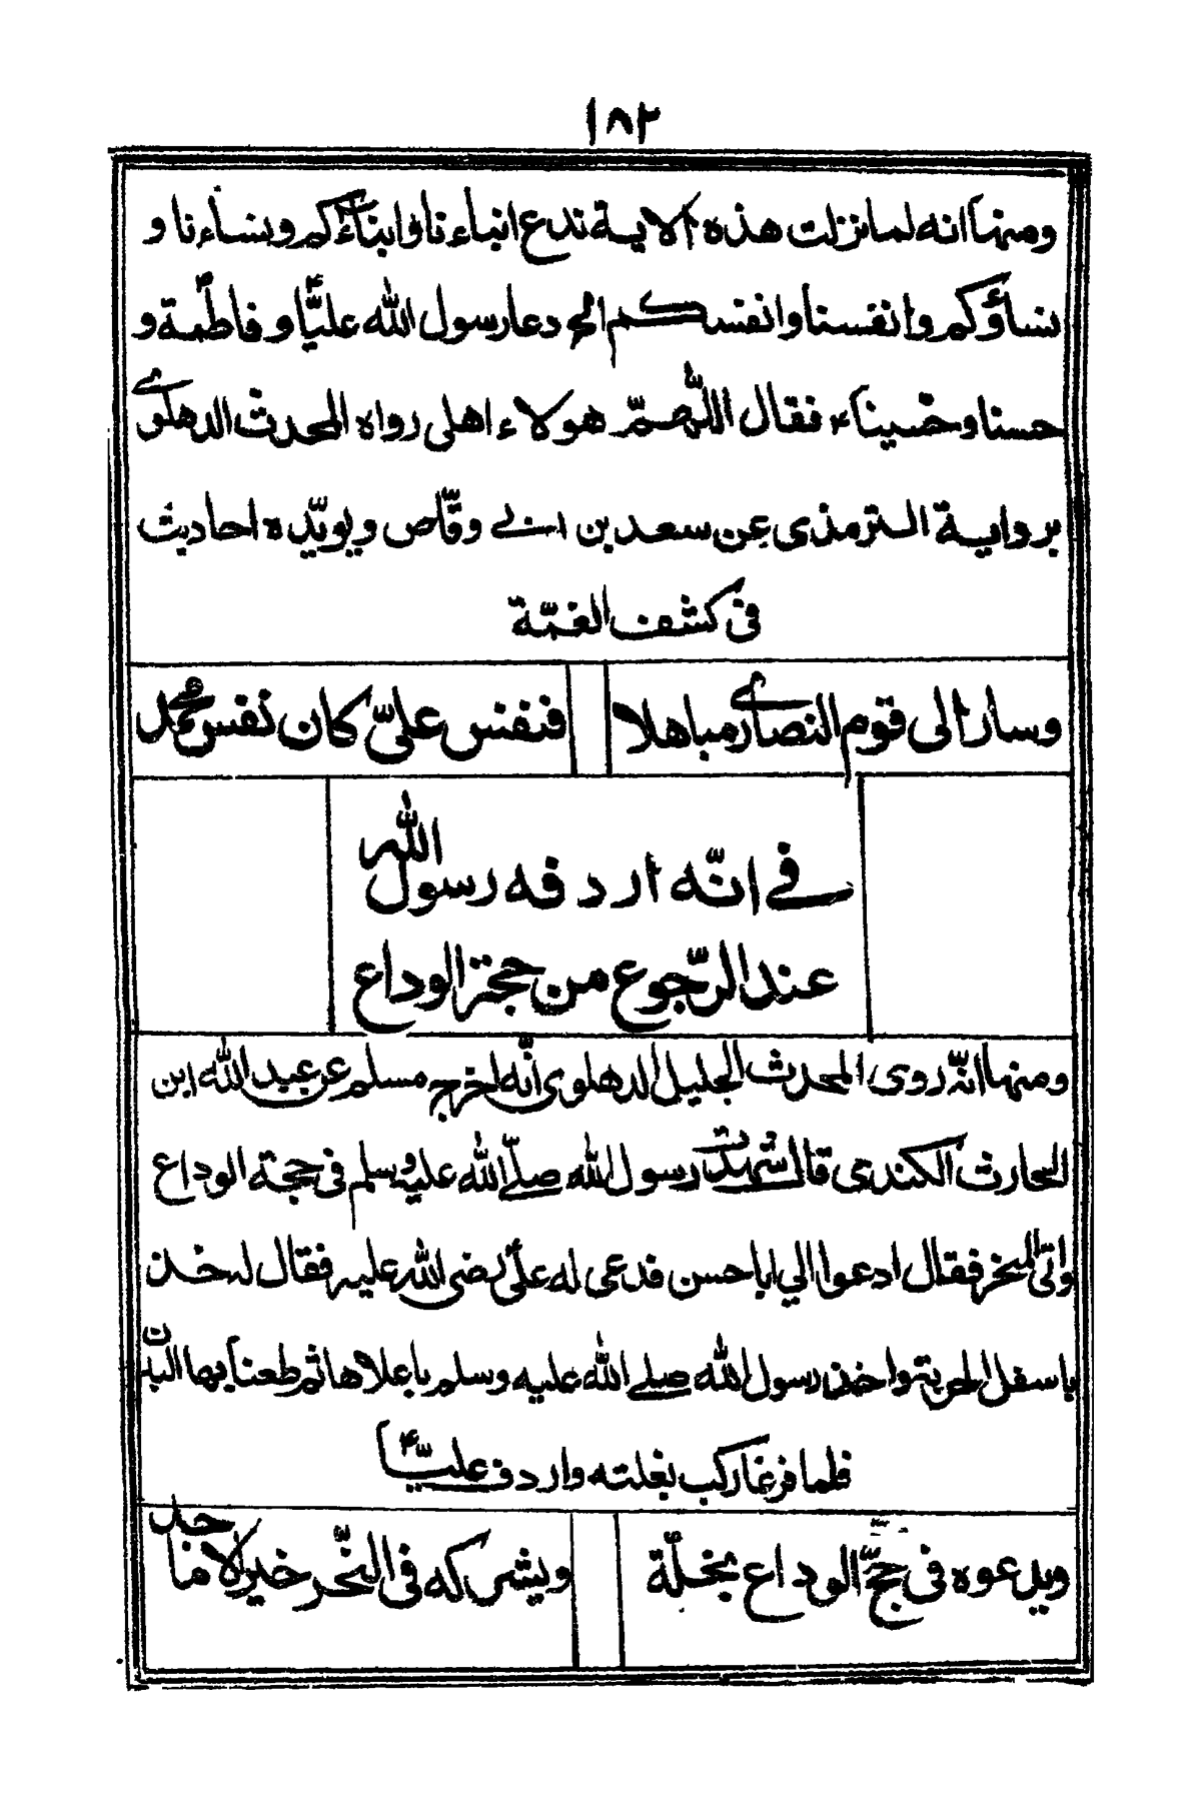 ١٨٢
ومنها انه لما نزلت هذه الاية ندع انباء نا وابناءكم ونساء نا و
نساؤكم وانفسنا وانفسكم الخ دعا رسول الله عليّا و فاطمة و
حسنا و حسينا فقال اللهمّ هولاء اهلى رواه المحدث الدهلوى
برواية الترمذى عن سعد بن ابى وقّاص ويويّده احاديث
فى كشف الغمّة
وسار الى قوم النصارى مباهلا
فنفس علىّ كان نفس محمد
فى انّه اردفه رسول الله
عند الرّجوع من حجة الوداع
ومنها انّه روى المحدث الجليل الدهلوى انّه اخرج مسلم عن عبيد الله ابن
الحارث الكندى قال شهدت رسول الله صلّى الله عليه وسلم فى حجة الوداع
واتى المنحر فقال ادعوا الي ابا حسن فدعى له علىّ رضى الله عليه فقال له خذ
باسفل الحربة واخذ رسول الله صلى الله عليه وسلم باعلاها ثم طعنا بها البدن
فلما فرغا ركب بغلته واردف عليّا
ويدعوه فى حجّ الوداع بخلّة
ويشركه فى النّحر خير الاماجد